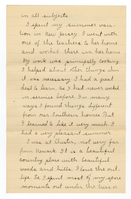 in all subjects.
I spent my summer vaca-
tion in New Jersey. I went with
one of the teachers to her home
and worked there in her home.
My work was principally cooking
I helped along other things when
it was necessary. I had a great
deal to learn as I had never worked
in service before. In many
ways I found things different
from our Southern homes. But
I learned to like it very much and
had a very pleasant summer.
I was at , not very far
from Newark. It is a beautiful
country place with beautiful
woods and hills. I love the out
so I spent most of my spare
moments out under the trees or